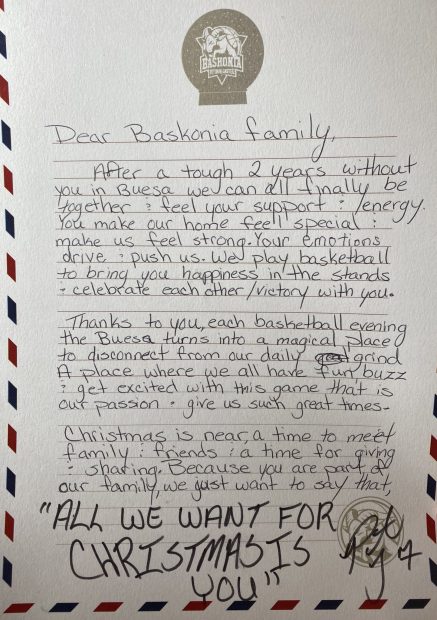 BASKONIA
Dear Baskonia family,
After a tough 2 years without
you in Buesa we can all finally be
together & feel your support & /energy.
You make our home feel special &
make us feel strong. Your emotions
drive & push us. We play basketball
to bring you happiness in the stands
& celebrate each other/victory with you.
Thanks to you, each basketball evening
the Buesa turns into a magical place
to disconnect from our daily grind
A place where we all have fun, buzz
& get excited with this game that is
our passion & give us such great times.
Christmas is near, a time to meet
family & friends & a time for giving
& sharing. Because you are part of
our family, we just want to say that,
"ALL WE WANT FOR
CHRISTMAS IS
YOU"